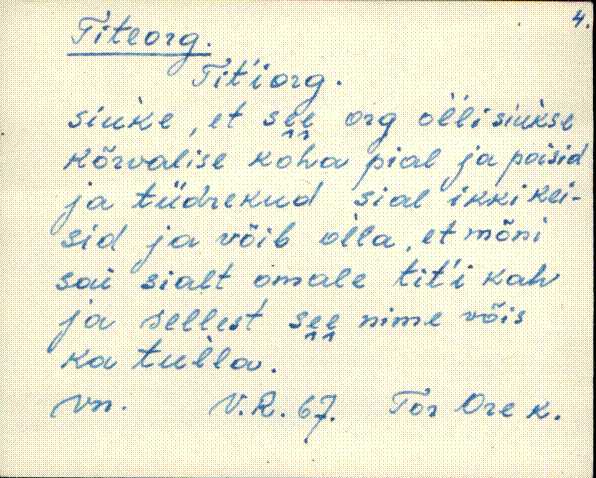 4.
Titeorg.
Tit'i org.
siuke, et see org ol'li siukse
kõrvalise koha pial ja poisid
ja tüdrekud sial ikki kei-
sid ja võib ol'la, et mõni
sai sialt omale tit'i kah
ja sellest see nime võis
ka tul'la.
vn. V.R. 67. Tor Ore k.